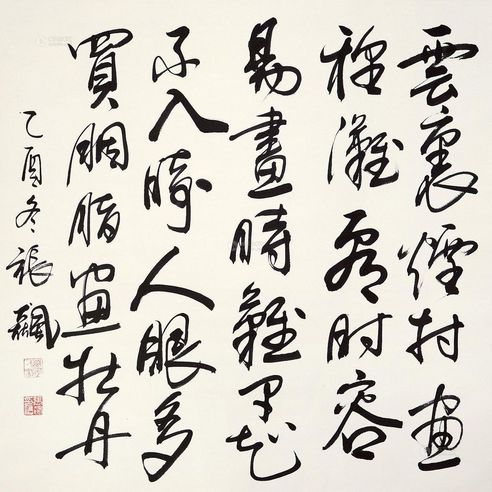 雲裏煙村画
裡灘看时容
易畫時難早知
不入時人眼多
買胭脂画牡丹
乙酉冬張飆